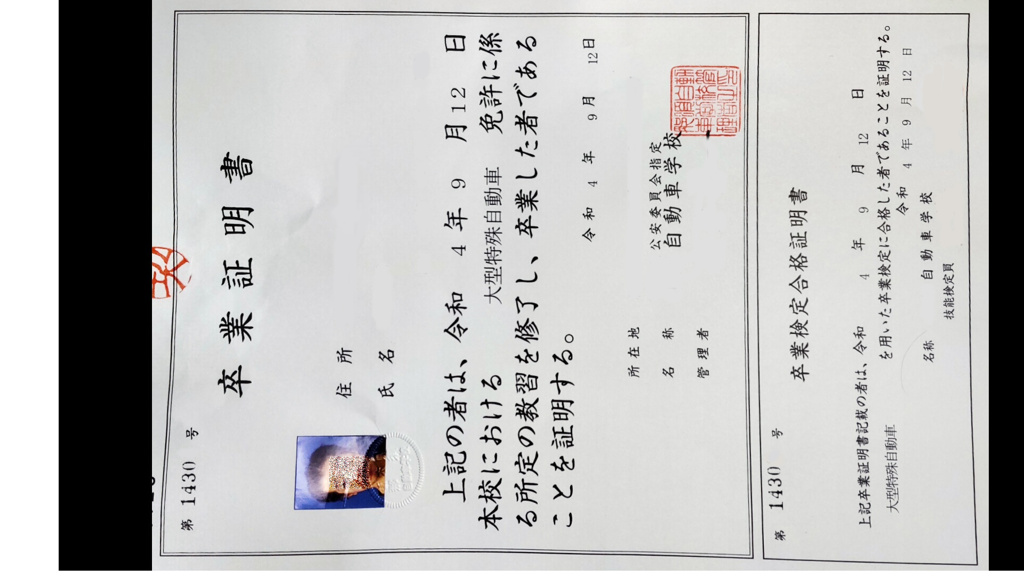 第 1430 号
卒業証明書
住所
氏名
上記の者は、令和 4 年 9 月 12 日
本校における 大型特殊自動車 免許に係
る所定の教習を修了し、卒業した者である
ことを証明する。
令和 4 年 9月 12日
公安委員会指定
所在地
名称 自動車学校
管理者
第 1430 号
卒業検定合格証明書
上記卒業証明書記載の者は、令和 4 年 9 月 12 日
大型特殊自動車 を用いた卒業検定に合格した者であることを証明する。
令和 4 年 9 月 12 日
名称 自動車学校
技能検定員